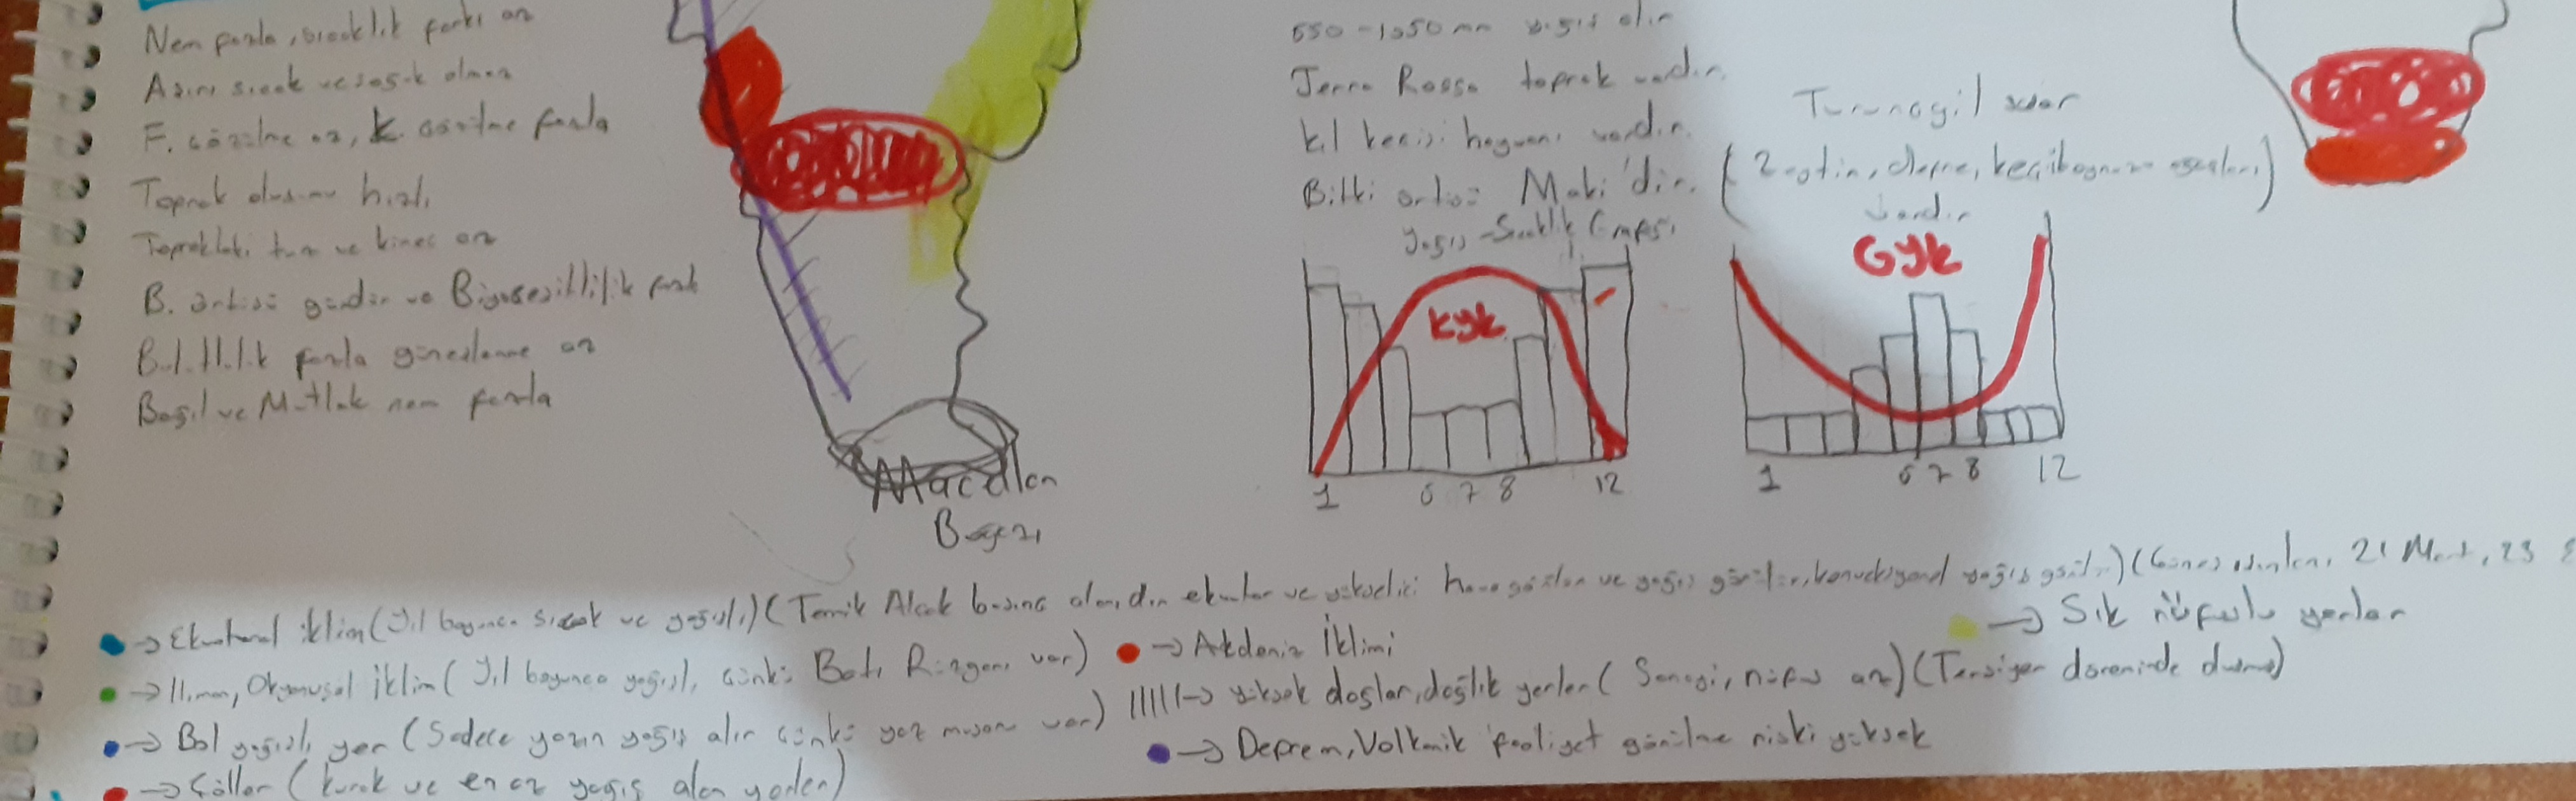 Nem fazla, sıcaklık farkı az
Aşırı sıcak ve soğuk olmaz
F. çözülme az, K. çözülme fazla
Toprak oluşumu hızlı
Topraktaki tuz ve kireç az
B. örtüsü gürdür ve Biyoçeşitlilik fazla
Bulutluluk fazla güneşlenme az
Bağıl ve Mutlak nem fazla
Macellan
Boğazı
550-1050 mm yağış alır
Terra Rossa toprak vardır.
kıl keçisi hayvanı vardır.
Bitki örtüsü Maki'dir.
Turunçgil
(Zeytin, defne, keçiboynuzu
vardır
Yağış-Sıcaklık
KYK
1 6 7 8 12
GYK
1 6 7 8 12
→ Ekvatoral iklim (Yıl boyunca sıcak ve yağışlı) (Termik Alçak basınç ekvator ve yükselici hava ve yağış konveksiyonel yağış görülür) 21 Mart, 23
→ Ilıman, Okyanusal iklim (Yıl boyunca yağışlı, çünkü Batı Rüzgarı var)
→ Akdeniz İklimi
→ Sık nüfuslu yerler
→ Bol yağışlı yer (Sadece yazın yağış alır çünkü yaz muson var)
|||||→ yüksek dağlar, dağlık yerler (Sanayi, nüfus az) (Tersiyer döneminde
→ Deprem, Volkanik faaliyet görülme riski yüksek
→ Çöller (Kurak ve en az yağış alan yerler)